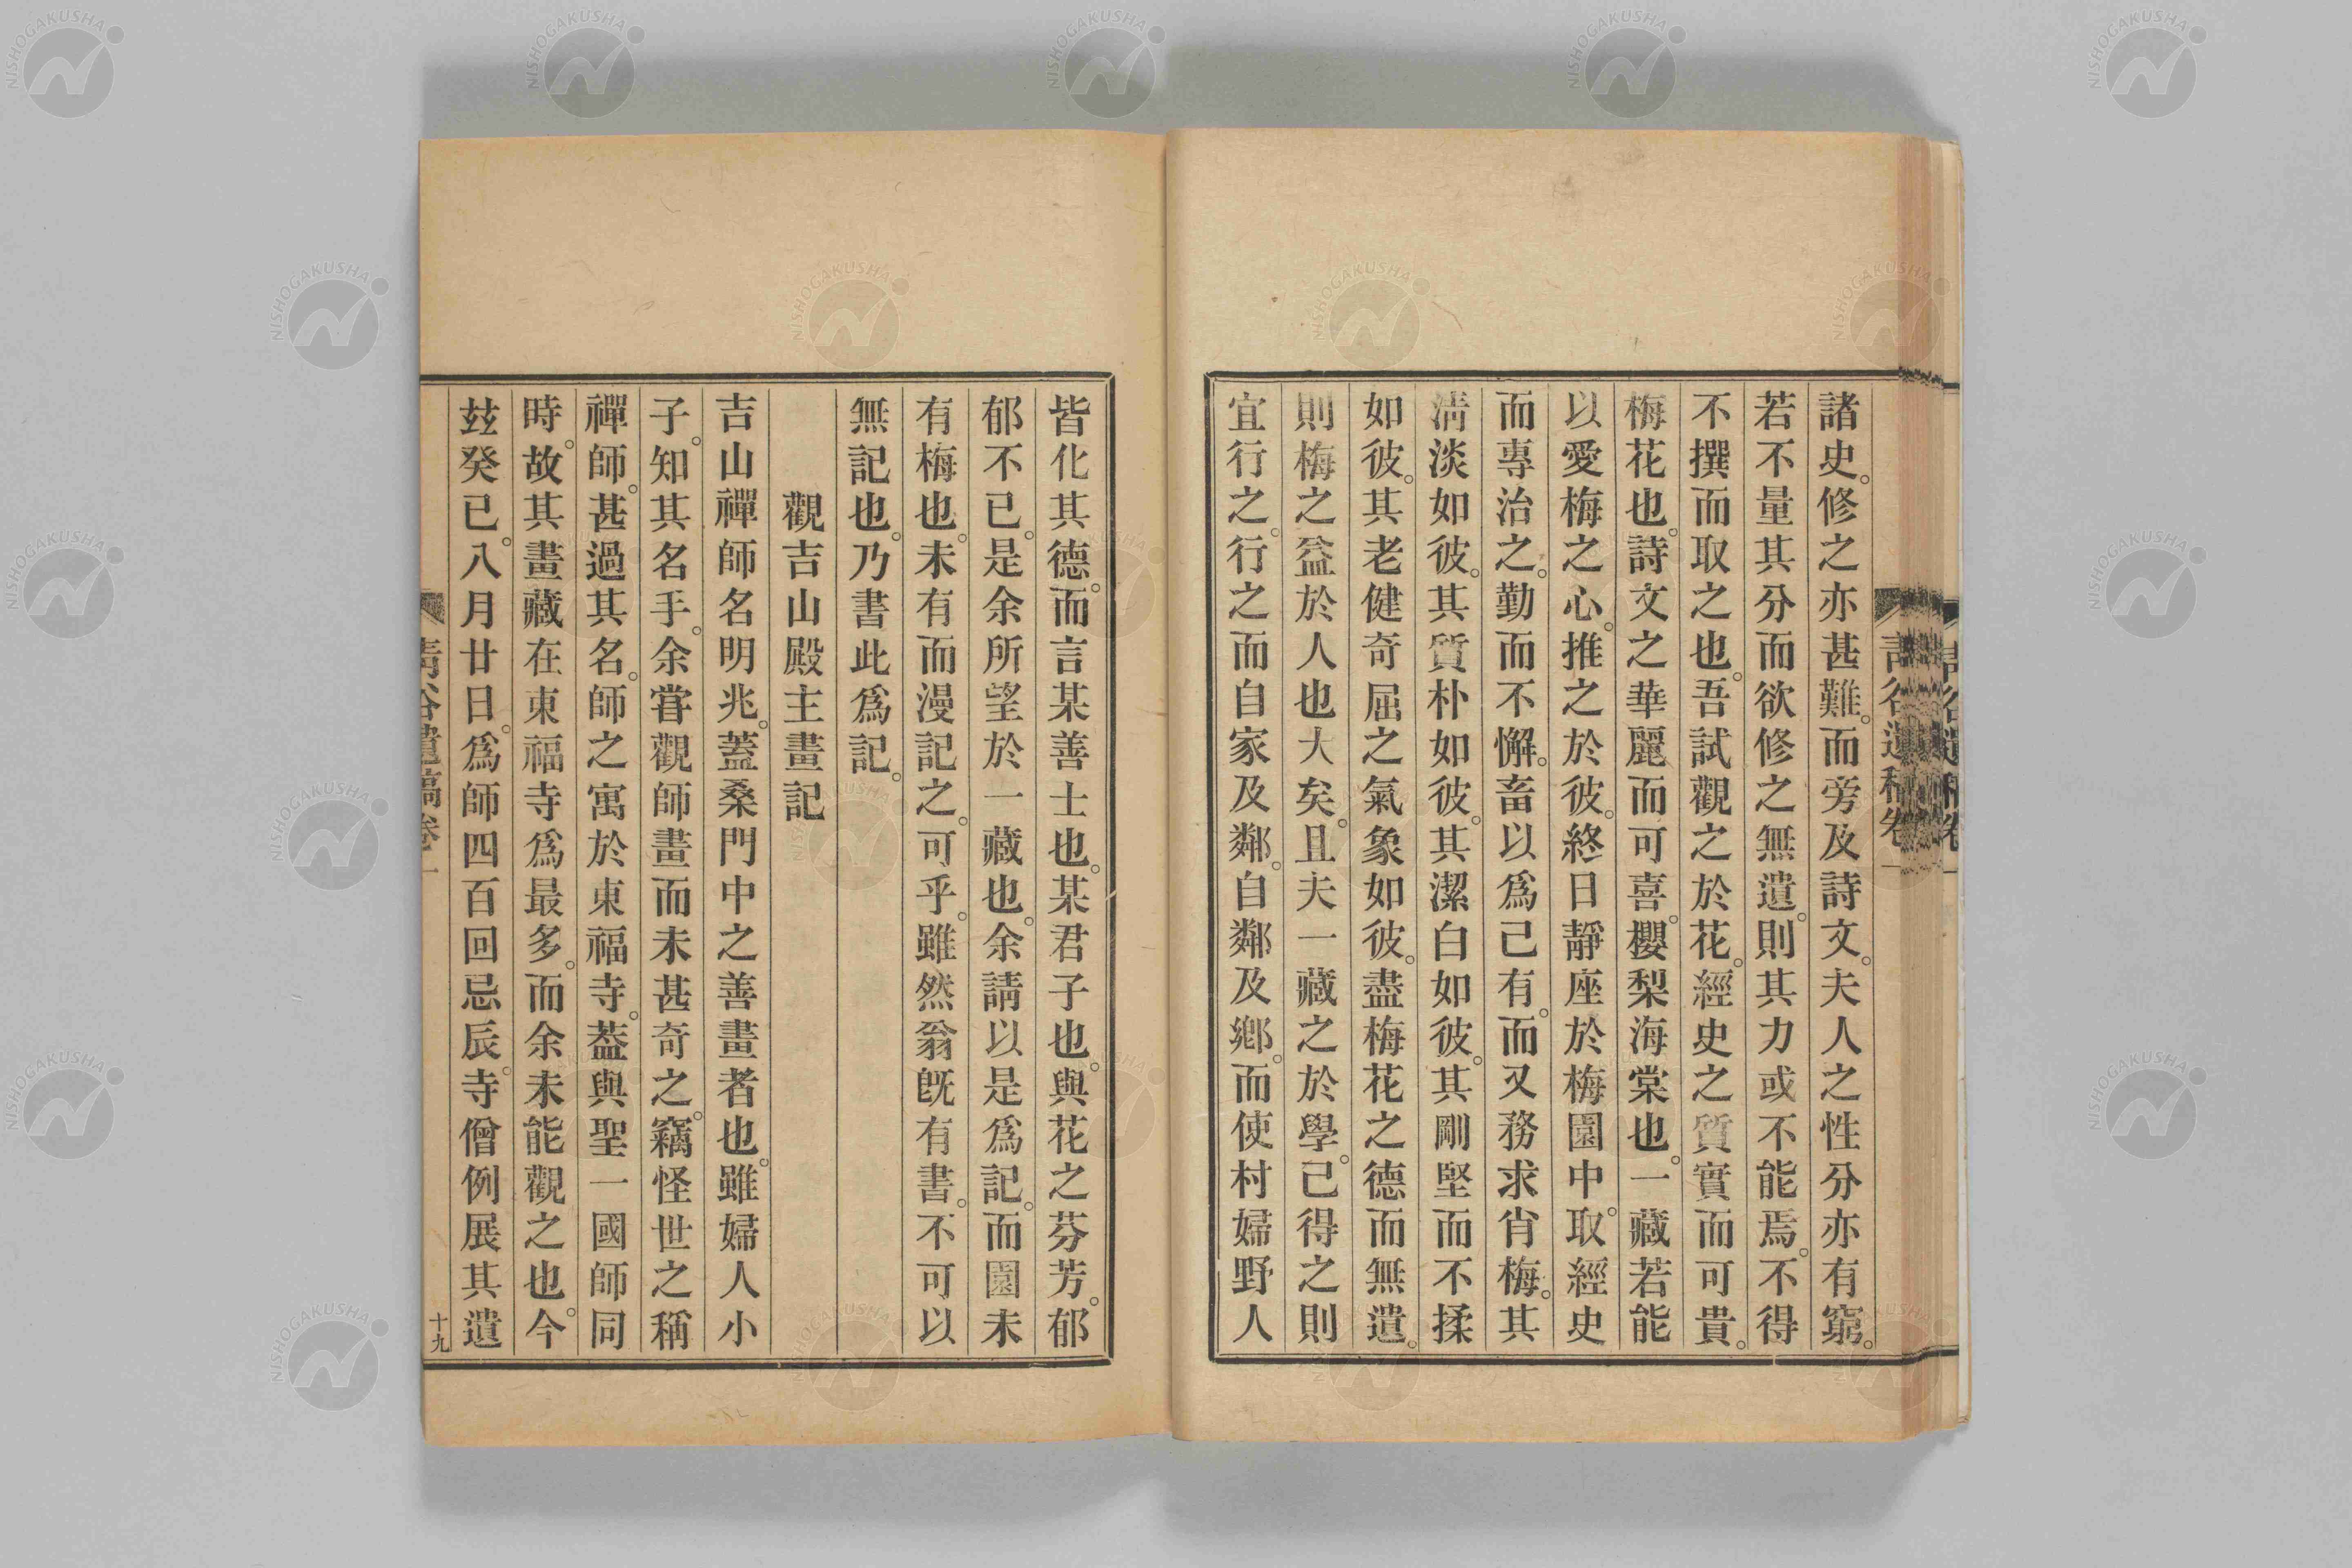 諸史。修之亦甚難。而旁及詩文。夫人之性分亦有窮。
若不量其分而欲修之無遺。則其力或不能焉。不得
不撰而取之也。吾試觀之於花。經史之質實而可貴。
梅花也。詩文之華麗而可喜。櫻梨海棠也。一藏若能
以愛梅之心。推之於彼。終日靜座於梅園中。取經史
而專治之。勤而不懈。畜以爲己有。而又務求肖梅。其
淸淡如彼。其質朴如彼。其潔白如彼。其剛堅而不揉
如彼。其老健奇屈之氣象如彼。盡梅花之德而無遺。
則梅之益於人也大矣。且夫一藏之於學。已得之則
宜行之。行之而自家及鄰。自鄰及鄕。而使村婦野人
皆化其德。而言某善士也。某君子也。與花之芬芳。郁
郁不已。是余所望於一藏也。余請以是爲記。而園未
有梅也。未有而漫記之。可乎。雖然翁既有書。不可以
無記也。乃書此爲記。
觀吉山殿主畫記
吉山禪師名明兆。蓋桑門中之善畫者也。雖婦人小
子。知其名手。余嘗觀師畫而未甚奇之。竊怪世之稱
禪師。甚過其名。師之寓於東福寺。蓋與聖一國師同
時。故其畫藏在東福寺爲最多。而余未能觀之也。今
玆癸巳。八月廿日。爲師四百回忌辰。寺僧例展其遺
淸谷遺稿卷一
十九
NISHOGAKUSHA